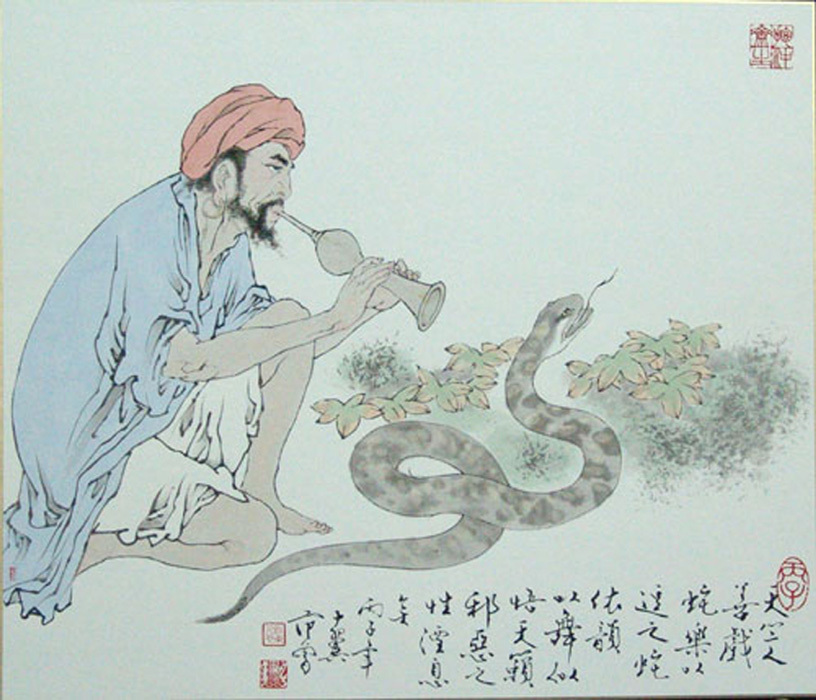 天竺人
善戲
蛇樂以
逗之蛇
依韻
以舞似
悟天籟
邪惡之
性湮息
矣
丙子年
十翼
范曾